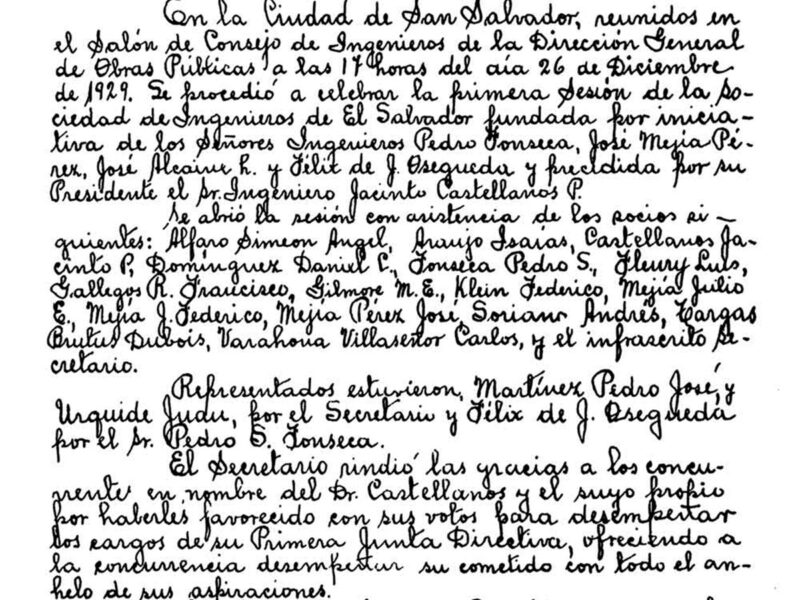 En la Ciudad de San Salvador, reunidos en
el Salón de Consejo de Ingenieros de la Dirección General
de Obras Públicas a las 17 horas del día 26 de Diciembre
de 1929. Se procedió a celebrar la primera Sesión de la So-
ciedad de Ingenieros de El Salvador fundada por inicia-
tiva de los Señores Ingenieros Pedro Fonseca, José Mejía Pé-
rez, José Alcaine h. y Félix de J. Osegueda y precidida por su
Presidente el Sr. Ingeniero Jacinto Castellanos P.
Se abrió la sesión con asistencia de los socios si-
guientes: Alfaro Simeon Angel, Araujo Isaías, Castellanos Ja-
cinto P, Domínguez Daniel C., Fonseca Pedro S., Fleury Luis,
Gallegos R. Francisco, Gilmore M. E., Klein Federico, Mejía Julio
E., Mejía J. Federico, Mejía Pérez José, Soriano Andrés, Vargas
Brutus Dubois, Varahona Villaseñor Carlos, y el infrascrito Se-
cretario.
Representados estuvieron, Martínez Pedro José, y
Urquide Juan, por el Secretario y Félix de J. Osegueda
por el Sr. Pedro S. Fonseca.
El Secretario rindió las gracias a los concu-
rrente en nombre del Dr. Castellanos y el suyo propio
por haberles favorecido con sus votos para desempeñar
los cargos de su Primera Junta Directiva, ofreciendo a
la concurrencia desempeñar su cometido con todo el an-
helo de sus aspiraciones.